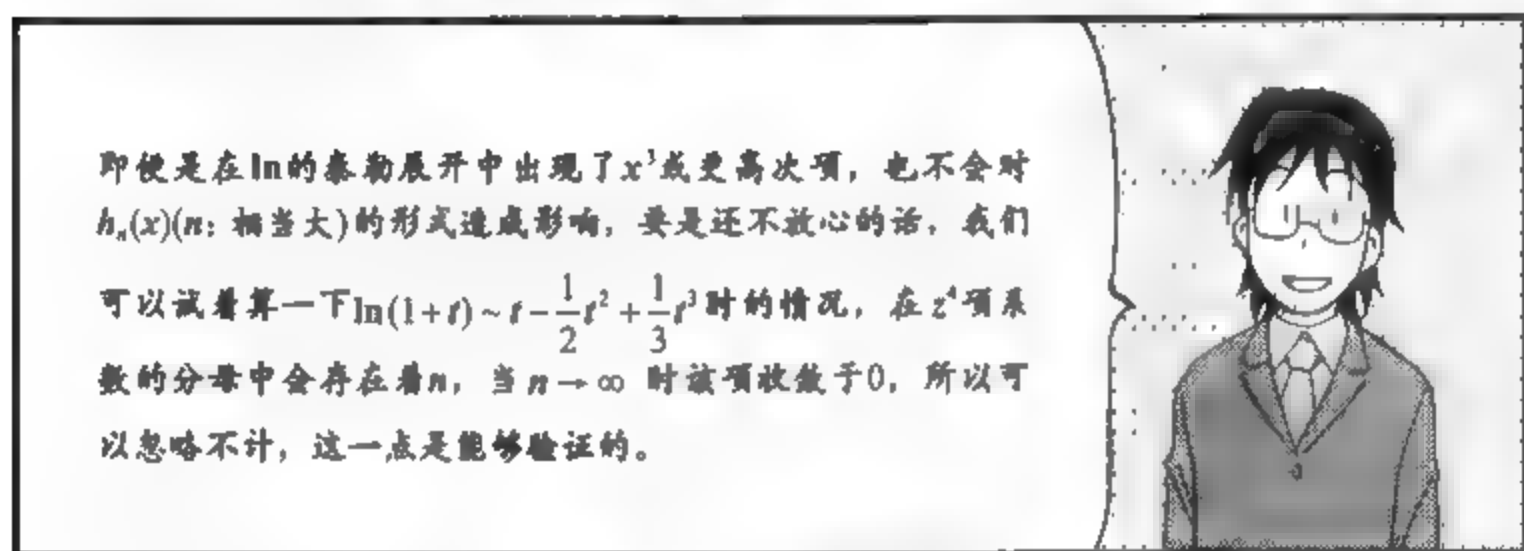 即使是在ln的泰勒展开中出现了x³或更高次项，也不会对
hₙ(x)(n：相当大)的形式造成影响，要是还不放心的话，我们
可以试着算一下ln(1+t) ~ t − 1/2 t² + 1/3 t³时的情况，在z⁴项系
数的分母中会存在着n，当n→∞ 时该项收敛于0，所以可
以忽略不计，这一点是能够验证的。